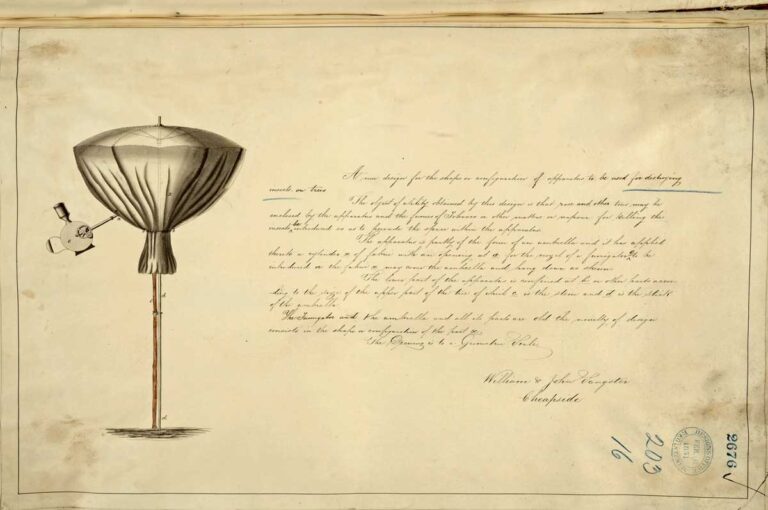 A new design for the shape or configuration of apparatus to be used for destroying
insects on trees
The object of utility obtained by this design is that rose and other trees may be
enclosed by the apparatus and the fumes of Tobacco or other matters or vapour for killing the
insects be introduced so as to pervade the space within the apparatus
The apparatus is partly of the form of an umbrella and it has applied
thereto a cylinder x of fabric with an opening at a for the nozzle of a fumigator to be
introduced or the fabric x may cover the umbrella and hang down as shewn
The lower part of the apparatus is confined at b or other parts accor-
ding to the size of the upper part of the tree of which c is the stem and d is the stick
of the umbrella
The Fumigator and the umbrella and all its parts are old the novelty of design
consists in the shape or configuration of the part x
The Drawing is to a Geometric Scale
William & John Sangster
Cheapside
2676
203
16
DESIGNS OFFICE
FEB
1851